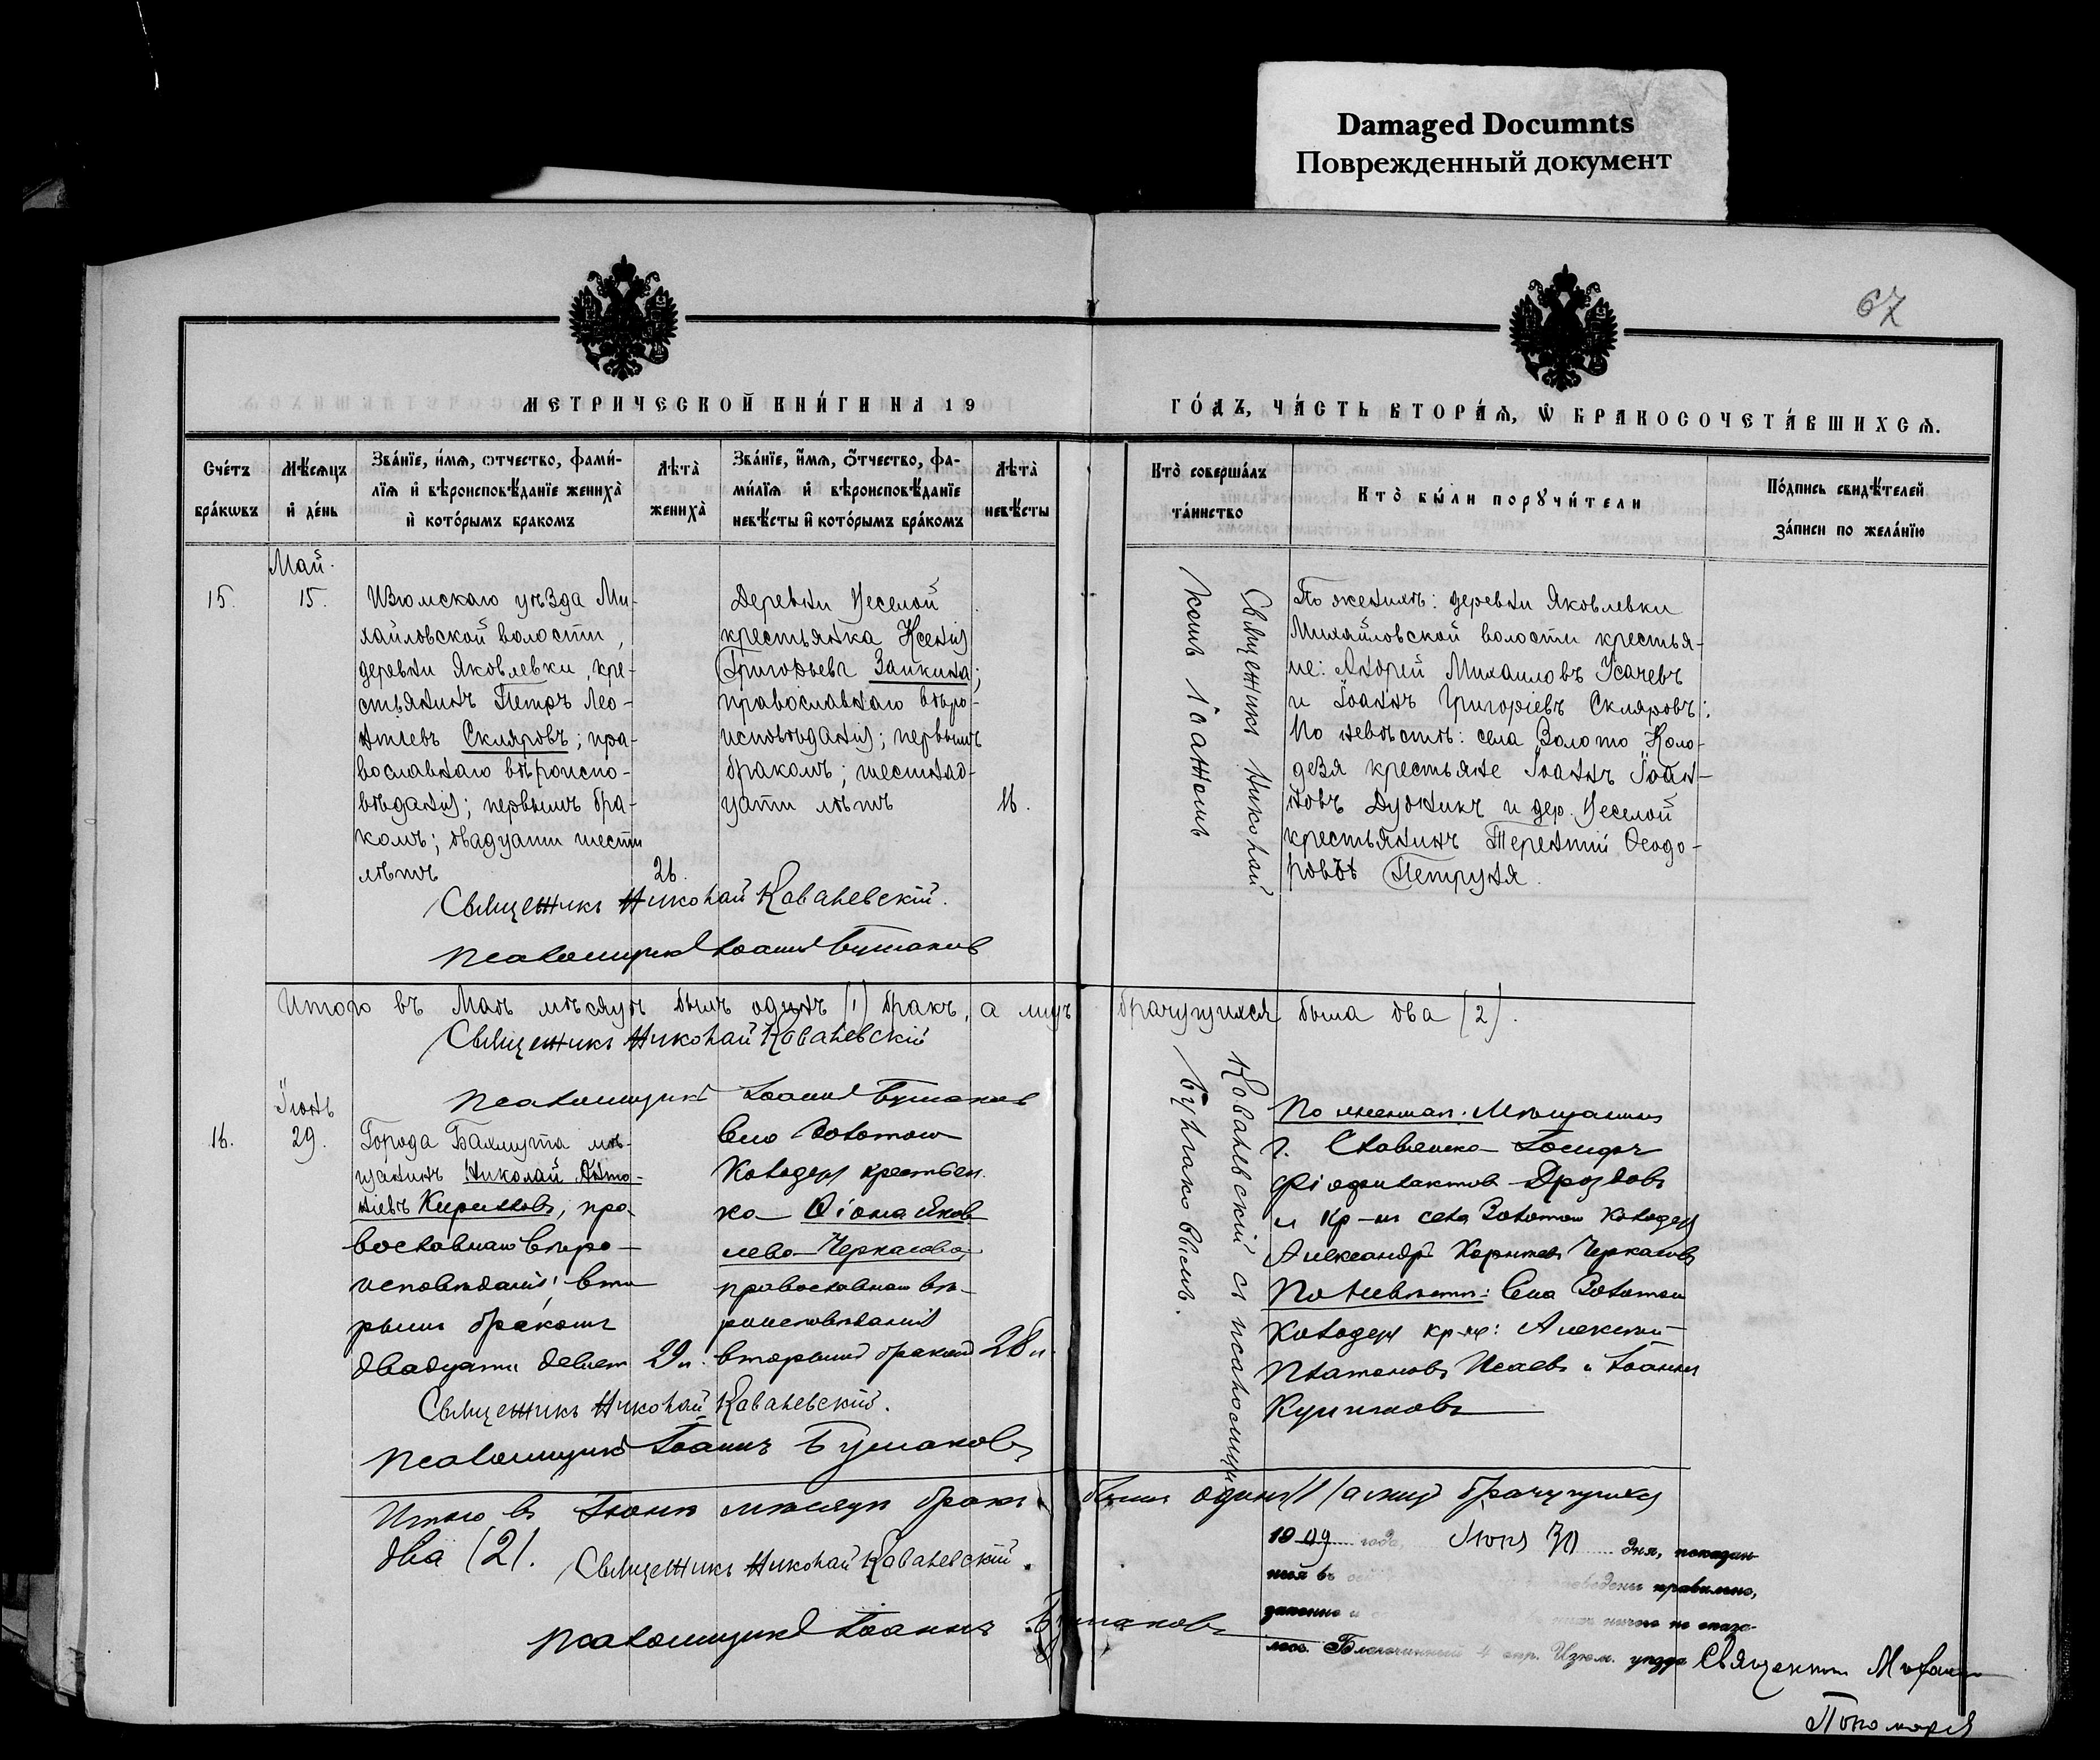 Damaged Documnts
Поврежденный документ
67
МЕТРИЧЕСКОЙ КНИ́ГИ НА 19
ГО́ДЪ, ЧА́СТЬ ВТОРА́Я, Ѡ БРАКОСОЧЕТА́ВШИХСЯ.
Сче́тъ бра́кѡвъ
Мѣ́сяцъ и де́нь
Зва́нїе, и́мя, ѻтчество, фами́-
лїя и҆ вѣроисповѣ́данїе жениха̀
и҆ кото́рымъ бракомъ
Лѣта̀ жениха̀
Зва́нїе, и́мя, ѻ́тчество, фа-
ми́лїя и҆ вѣроисповѣ́данїе
невѣ́сты и҆ кото́рымъ бра́комъ
Лѣта̀ невѣ́сты
Кто̀ соверша́лъ
та́инство
Кто̀ бы́ли порꙋчи́тели
По́дпись свидѣ́телей
за́писи по жела́нїю
Май
15.
15.
Изюмскаго уѣзда Ми-
хайловской волости,
деревни Яковлевки, кре-
стьянинъ Петръ Лео-
нтіевъ Скляровъ; пра-
вославнаго вѣроиспо-
вѣданія; первымъ бра-
комъ; двадцати шести
лѣтъ
26.
Деревни Веселой
крестьянка Ксенія
Григорьева Заикина;
православнаго вѣро-
исповѣданія; первымъ
бракомъ; шестнад-
цати лѣтъ
16.
Священникъ Николай
комъ Іоанномъ
По женихѣ: деревни Яковлевки
Михайловской волости крестья-
не: Андрей Михаиловъ Усачевъ
и Іоаннъ Григоріевъ Скляровъ;
По невѣстѣ: села Золото Коло-
дезя крестьяне Іоаннъ Іоан-
новъ Дудникъ и дер. Веселой
крестьянинъ Терентій Ѳеодо-
ровъ Петруня.
Священникъ Николай Ковалевскій.
Псаломщикъ Іоаннъ Булгаковъ
Итого въ Маѣ мѣсяцѣ былъ одинъ (1) бракъ, а лицъ брачущихся было два (2).
Священникъ Николай Ковалевскій
Псаломщикъ Іоаннъ Булгаковъ
Іюнь
16.
29.
Города Бахмута мѣ-
щанинъ Николай Анто-
ніевъ Кирилловъ, пра-
вославнаго вѣро-
исповѣданія; вто
рымъ бракомъ
двадцати девяти
29 л.
Села Золотого
Колодезя крестьян
ка Яков
лева Черкасова
православнаго вѣ-
роисповѣданія
вторымъ бракомъ
28 л.
Ковалевскій съ псаломщи
Булгаковымъ.
По женихѣ: Мѣщанинъ
г. Славянска Іосифъ
Дроздовъ
и кр-нъ села Золотого Колодезя
Александръ Черкасовъ
По невѣстѣ: Села Золотого
Колодезя кр-не: Алексѣй
Платоновъ Исаевъ и Іоаннъ
Священникъ Николай Ковалевскій.
Псаломщикъ Іоаннъ Булгаковъ
Итого въ Іюнѣ мѣсяцѣ бракъ былъ одинъ (1) а лицъ брачущихся
два (2). Священникъ Николай Ковалевскій.
Псаломщикъ Іоаннъ Булгаковъ
1909 года, Іюня 30 дня, показан-
ныя въ правильно,
ничего не оказа-
лось. Благочинный 4 окр. Изюм. уѣзда Священникъ Михаилъ
Пономаревъ